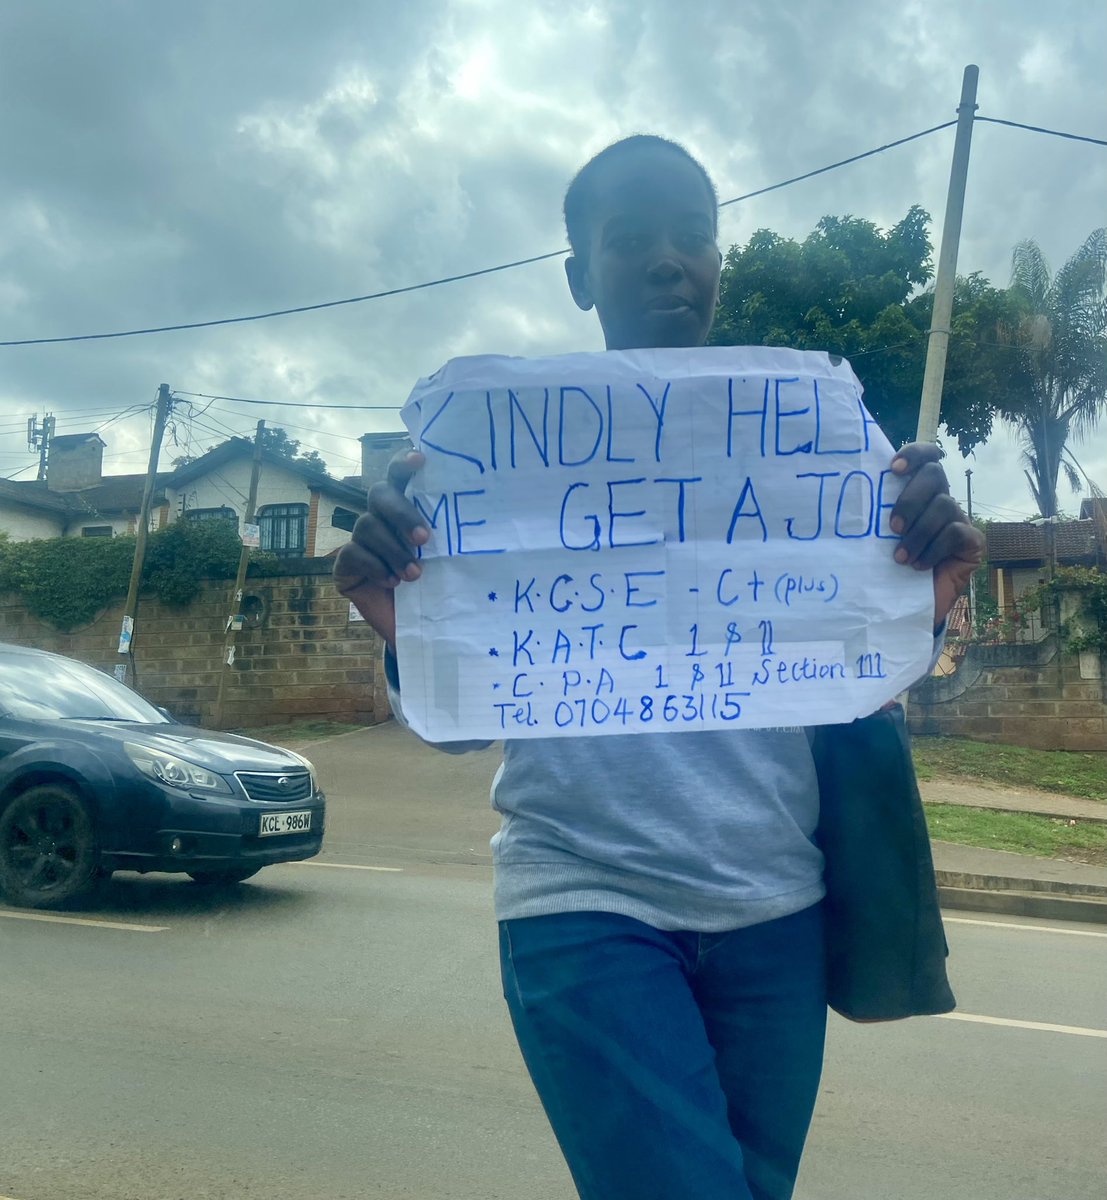 KINDLY HELP
ME GET A JOB
* K.C.S.E - C+ (plus)
* K.A.T.C 1 $ 11
* C.P.A 1 $ 11 Section 111
Tel. 0704863115
KCE 986W